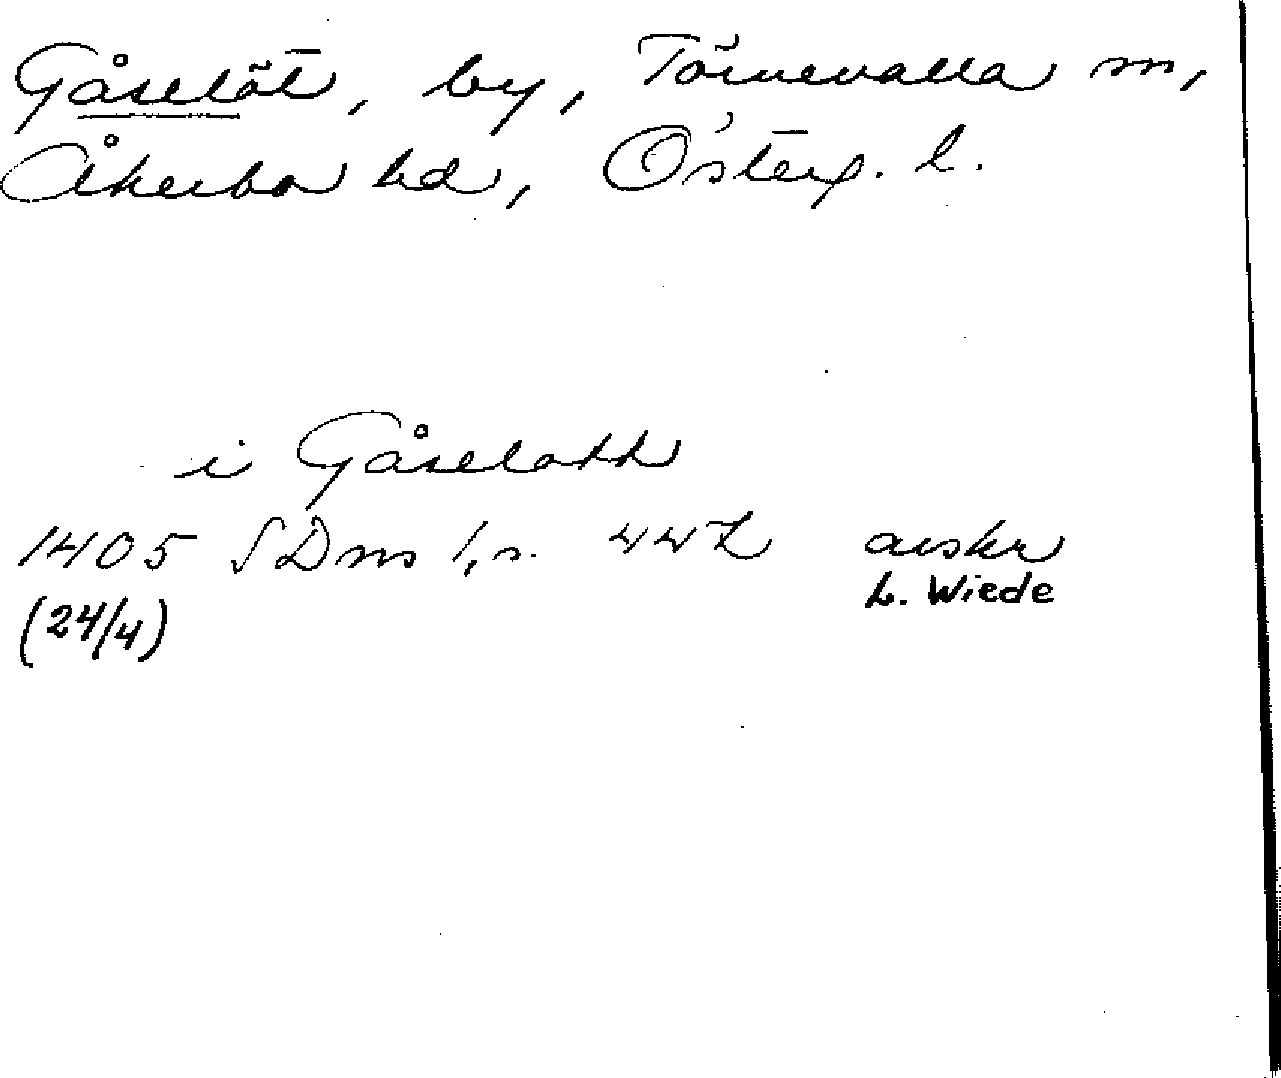 Gåselöt, by, Törnevalla sn,
Åkerbo hd, Österg. l.
i Gåseloth
1405 SDns 1, s. 447 avskr
(24/4) L. Wiede